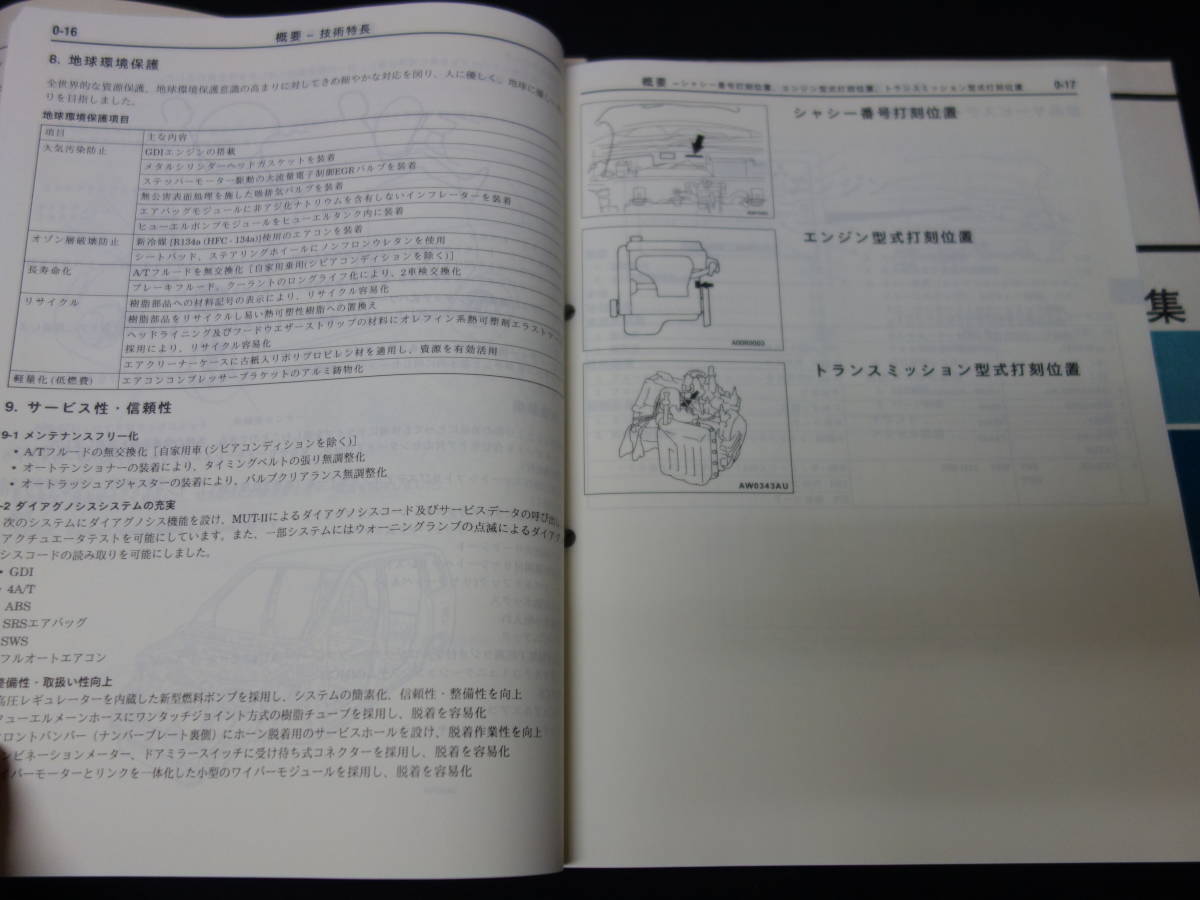 0-16
概要 - 技術特長
8. 地球環境保護
全世界的な資源保護、地球環境保護意識の高まりに対してきめ細やかな対応を図り、人に優しく、地球に優しい
りを目指しました。
地球環境保護項目
項目 主な内容
大気汚染防止 GDIエンジンの搭載
メタルシリンダーヘッドガスケットを装着
ステッパーモーター駆動の大流量電子制御EGRバルブを装着
無公害表面処理を施した吸排気バルブを装着
エアバッグモジュールに非アジ化ナトリウムを含有しないインフレーターを装着
ヒューエルポンプモジュールをヒューエルタンク内に装着
オゾン層破壊防止 新冷媒 [R134a (HFC - 134a)]使用のエアコンを装着
シートパッド、ステアリングホイールにノンフロンウレタンを使用
長寿命化 A/Tフルードを無交換化［自家用車用(シビアコンディションを除く)］
ブレーキフルード、クーラントのロングライフ化により、2車検交換化
リサイクル 樹脂部品への材料記号の表示により、リサイクル容易化
樹脂部品をリサイクルし易い熱可塑性樹脂への置換え
ヘッドライニング及びフードウエザーストリップの材料にオレフィン系熱可塑剤エラストマー
採用により、リサイクル容易化
エアクリーナーケースに古紙入りポリプロピレン材を適用し、資源を有効活用
軽量化 (低燃費) エアコンコンプレッサーブラケットのアルミ鋳物化
9. サービス性・信頼性
9-1 メンテナンスフリー化
• A/Tフルードの無交換化［自家用車 (シビアコンディションを除く)］
• オートテンショナーの装着により、タイミングベルトの張り無調整化
• オートラッシュアジャスターの装着により、バルブクリアランス無調整化
-2 ダイアグノシスシステムの充実
次のシステムにダイアグノシス機能を設け、MUT-IIによるダイアグノシスコード及びサービスデータの呼び出し
アクチュエータテストを可能にしています。また、一部システムにはウォーニングランプの点滅によるダイアグ
シスコードの読み取りを可能にしました。
• GDI
• 4A/T
ABS
SRSエアバッグ
SWS
フルオートエアコン
整備性・取扱い性向上
高圧レギュレーターを内蔵した新型燃料ポンプを採用し、システムの簡素化、信頼性・整備性を向上
フューエルメーンホースにワンタッチジョイント方式の樹脂チューブを採用し、脱着を容易化
フロントバンパー（ナンバープレート裏側）にホーン脱着用のサービスホールを設け、脱着作業性を向上
ンビネーションメーター、ドアミラースイッチに受け待ち式コネクターを採用し、脱着を容易化
イパーモーターとリンクを一体化した小型のワイパーモジュールを採用し、脱着を容易化
概要 -シャシー番号打刻位置、エンジン型式打刻位置、トランスミッション型式打刻位置
0-17
シャシー番号打刻位置
エンジン型式打刻位置
A00R0003
トランスミッション型式打刻位置
AW0343AU
集